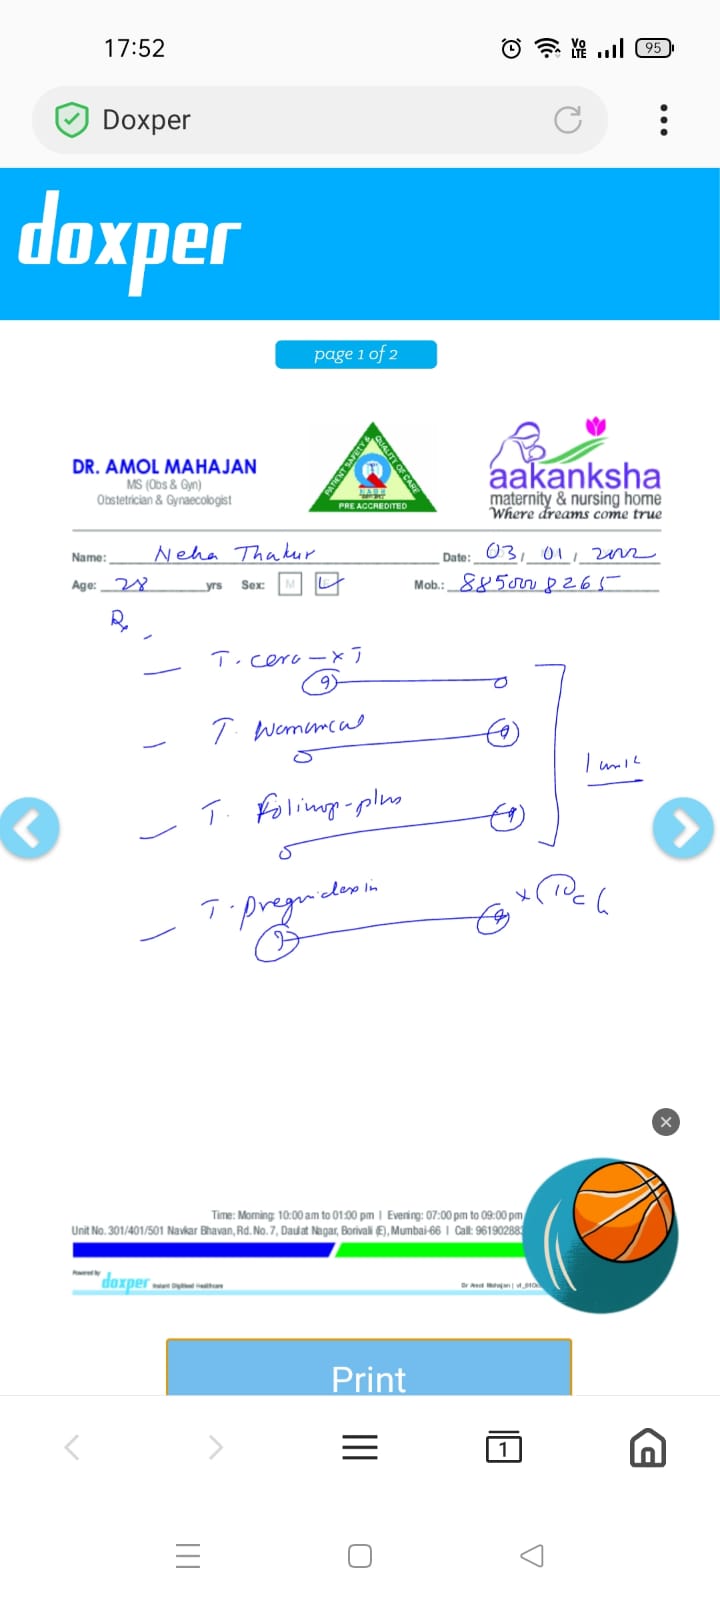 17:52
Vo LTE
95
Doxper
doxper
page 1 of 2
DR. AMOL MAHAJAN
MS (Obs & Gyn)
Obstetrician & Gynaecologist
PATIENT SAFETY & QUALITY OF CARE
NABH
PRE ACCREDITED
aakanksha
maternity & nursing home
Where dreams come true
Name: Neha Thakur Date: 03/ 01 / 2022
Age: 28 yrs Sex: M Mob.: 8850008265
Rx
T.
T.
T. Folinop-plus
T. pregnidoxin
x 10
Time: Morning: 10:00 am to 01:00 pm | Evening: 07:00 pm to 09:00 pm
Unit No. 301/401/501 Navkar Bhavan, Rd. No. 7, Daulat Nagar, Borivali (E), Mumbai-66 | Call: 96190288
Powered by
doxper Instant Digitised Healthcare
Dr Amol Mahajan |
Print
1